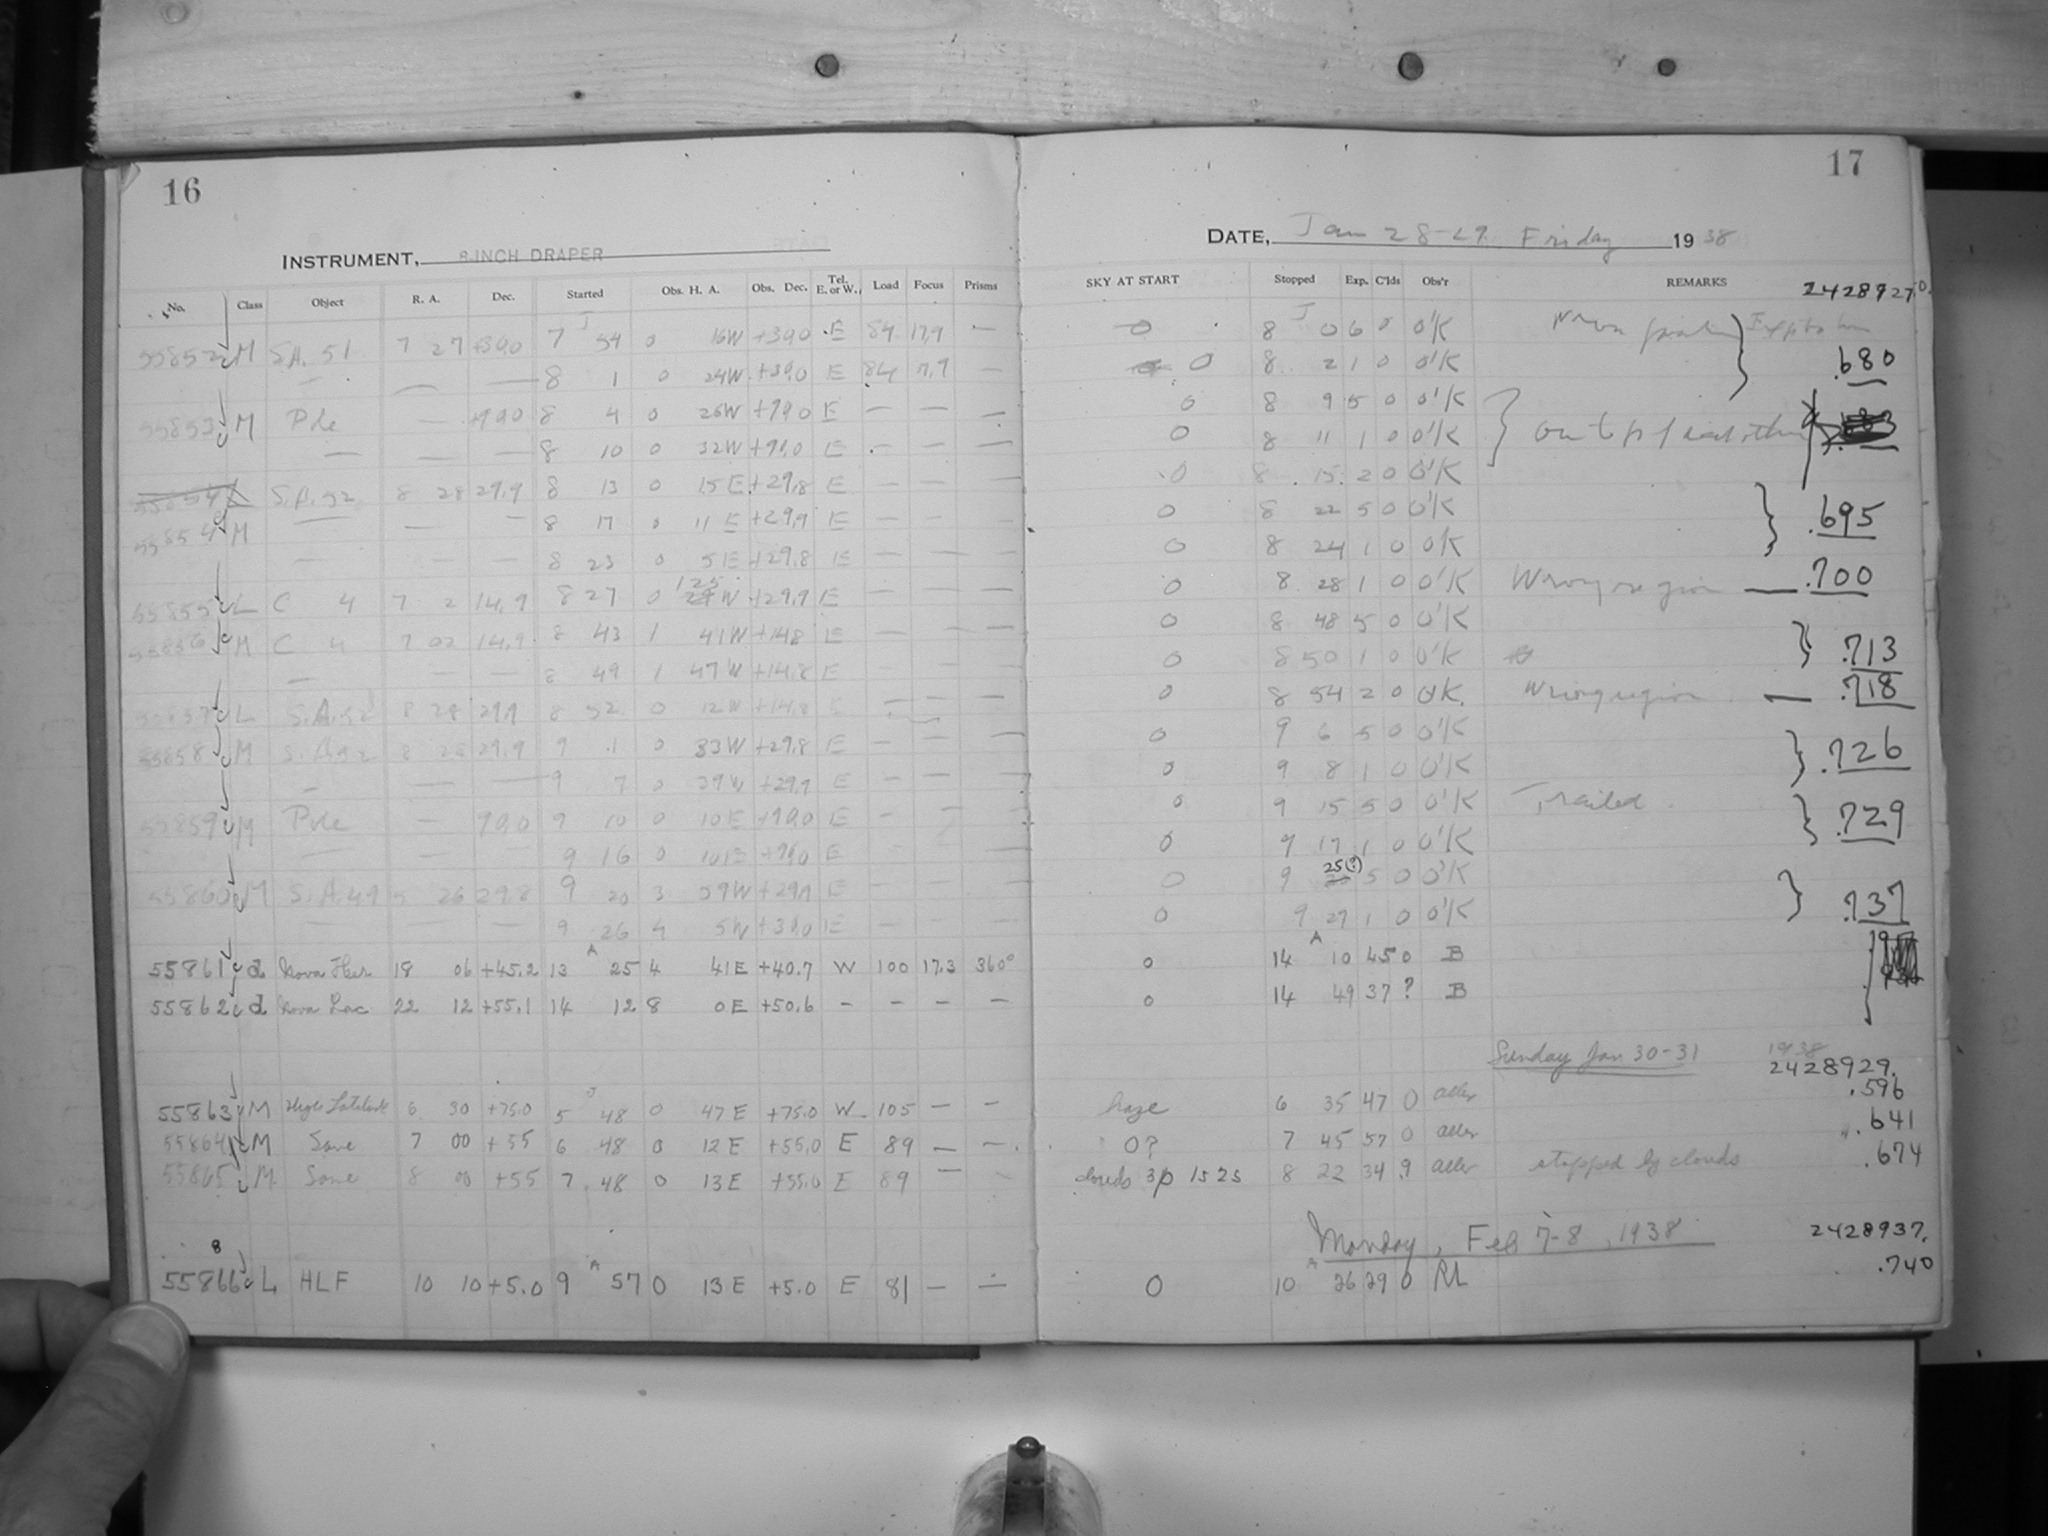 16
INSTRUMENT, 8-INCH DRAPER
No. Class Object R. A. Dec. Started Obs. H. A. Obs. Dec. Tel. E. or W. Load Focus Prisms
55852 M S.A. 51 7 27 +30.0 7 J 54 0 16W +30.0 E 84 17.9 —
— — — 8 1 0 24W E 84 —
55853 M Pole — 8 4 0 26W E — — —
— — — 8 10 0 32W E — — —
S.A. 52 8 28 29.9 8 13 0 15E +29.8 E — — —
55854 M — — — 8 17 0 11E +29.9 E — — —
— — — 8 23 0 5E +29.8 E — — —
55855 L C 4 7 2 14.9 8 27 0 W +29.9 E — — —
55856 M C 4 7 02 14.9 8 43 1 41W +14.8 E — — —
— — — 8 49 1 47W +14.8 E — — —
L S.A. 52 8 28 29.9 8 52 0 12W +14.8 E — — —
55858 M S.A. 52 8 28 29.9 9 1 0 33W +29.8 E — — —
— — — 9 7 0 39W +29.9 E — — —
55859 M Pole — 9 10 0 10E E — —
— — — 9 16 0 E —
55860 M S.A. 49 5 26 29.8 9 20 3 59W +29.9 E — — —
— — — 9 26 4 5W E — — —
55861 d Nova Her 18 06 +45.2 13 A 25 4 41E +40.7 W 100 17.3 360°
55862 d Nova Lac 22 12 +55.1 14 12 8 0E +50.6 — — — —
55863 M High Latitude 6 30 +75.0 5 J 48 0 47E +75.0 W 105 — —
55864 M Same 7 00 +55 6 48 0 12E +55.0 E 89 — —
55865 M Same 8 00 +55 7 48 0 13E +55.0 E 89 — —
8
55866 L HLF 10 10 +5.0 9 A 57 0 13E +5.0 E 81 — —
17
DATE, Jan 28-29 Friday 1938
SKY AT START Stopped Exp. C'lds Obs'r REMARKS
2428927.
0 8 J 0 6 0 O'K
0 8 2 1 0 O'K .680
0 8 9 5 0 O'K
0 8 11 1 0 O'K out of
0 8 15 2 0 O'K
0 8 22 5 0 O'K .695
0 8 24 1 0 O'K
0 8 28 1 0 O'K Wrong region — .700
0 8 48 5 0 O'K
0 8 50 1 0 O'K .713
0 8 54 2 0 O'K. Wrong region — .718
0 9 6 5 0 O'K
0 9 8 1 0 O'K .726
0 9 15 5 0 O'K Trailed
0 9 17 1 0 O'K .729
0 9 25(?) 5 0 O'K
0 9 27 1 0 O'K .737
0 14 A 10 45 0 B
0 14 49 37 ? B
Sunday Jan 30-31 1938
2428929.
haze 6 35 47 0 .596
0? 7 45 57 0 .641
clouds 3p 1525 8 22 34 9 stopped by clouds .674
Monday, Feb 7-8, 1938 2428937.
0 10 A 26 29 0 RL .740